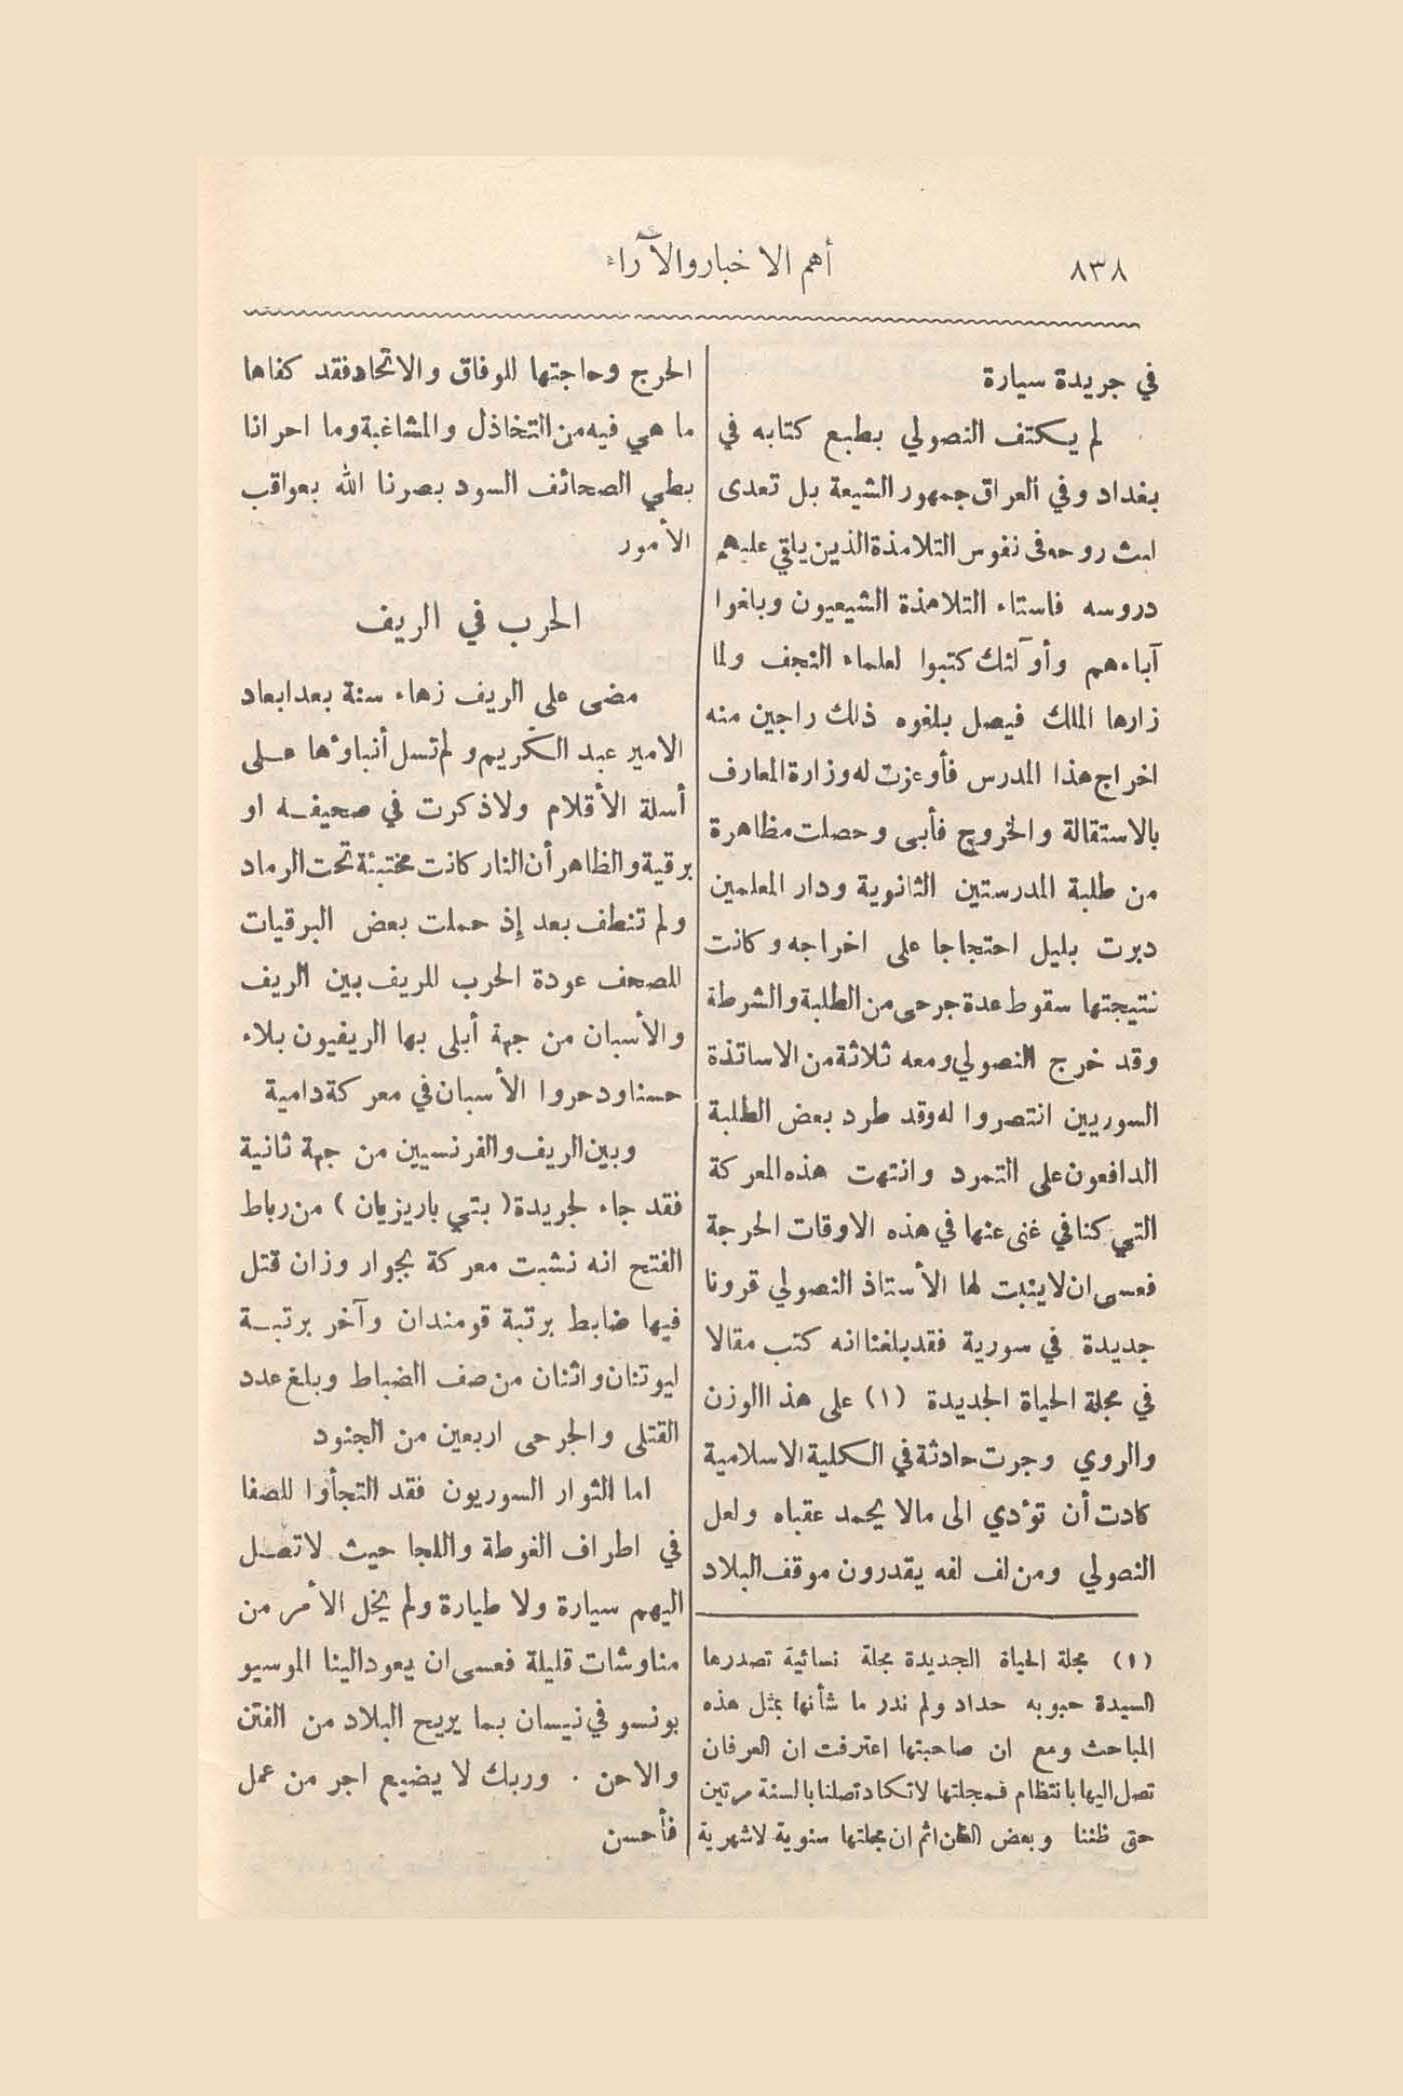 ٨٣٨
أهم الاخبار والآراء
في جريدة سيارة
لم يكتف النصولي بطبع كتابه في
بغداد وفي العراق جمهور الشيعة بل تعدى
لبث روحه في نفوس التلامذة الذين يلقي عليهم
دروسه فاستاء التلامذة الشيعيون وبلغوا
آباءهم وأولئك كتبوا لعلماء النجف ولما
زارها الملك فيصل بلغوه ذلك راجين منه
اخراج هذا المدرس فأوعزت له وزارة المعارف
بالاستقالة والخروج فأبى وحصلت مظاهرة
من طلبة المدرستين الثانوية ودار المعلمين
دبرت بليل احتجاجا على اخراجه وكانت
نتيجتها سقوط عدة جرحى من الطلبة والشرطة
وقد خرج النصولي ومعه ثلاثة من الاساتذة
السوريين انتصروا له وقد طرد بعض الطلبة
الدافعون على التمرد وانتهت هذه المعركة
التي كنا في غنى عنها في هذه الاوقات الحرجة
فعسى ان لا ينبت لها الأستاذ النصولي قرونا
جديدة في سورية فقد بلغنا انه كتب مقالا
في مجلة الحياة الجديدة (١) على هذا الوزن
والروي وجرت حادثة في الكلية الاسلامية
كادت أن تؤدي الى مالا يحمد عقباه ولعل
النصولي ومن لف لفه يقدرون موقف البلاد
(١) مجلة الحياة الجديدة مجلة نسائية تصدرها
السيدة حبوبه حداد ولم ندر ما شأنها بمثل هذه
المباحث ومع ان صاحبتها اعترفت ان العرفان
تصل اليها بانتظام فمجلتها لا تكاد تصلنا بالسنة مرتين
حتى ظننا وبعض الظن اثم ان مجلتها سنوية لا شهرية
الحرج وحاجتها للوفاق والاتحاد فقد كفاها
ما هي فيه من التخاذل والمشاغبة وما احرانا
بطي الصحائف السود بصرنا الله بعواقب
الأمور
الحرب في الريف
مضى على الريف زهاء سنة بعد ابعاد
الامير عبد الكريم ولم تسل أنباؤها على
أسلة الأقلام ولا ذكرت في صحيفة او
برقية والظاهر أن النار كانت مختبئة تحت الرماد
ولم تنطف بعد إذ حملت بعض البرقيات
للصحف عودة الحرب للريف بين الريف
والأسبان من جهة أبلى بها الريفيون بلاء
حسنا ودحروا الأسبان في معركة دامية
وبين الريف والفرنسيين من جهة ثانية
فقد جاء لجريدة ( بتي باريزيان ) من رباط
الفتح انه نشبت معركة بجوار وزان قتل
فيها ضابط برتبة قومندان وآخر برتبة
ليوتنان واثنان من صف الضباط وبلغ عدد
القتلى والجرحى اربعين من الجنود
اما الثوار السوريون فقد التجأوا للصفا
في اطراف الغوطة واللجا حيث لا تصل
اليهم سيارة ولا طيارة ولم يخل الأمر من
مناوشات قليلة فعسى ان يعود الينا الموسيو
بونسو في نيسان بما يريح البلاد من الفتن
والاحن . وربك لا يضيع اجر من عمل
فأحسن